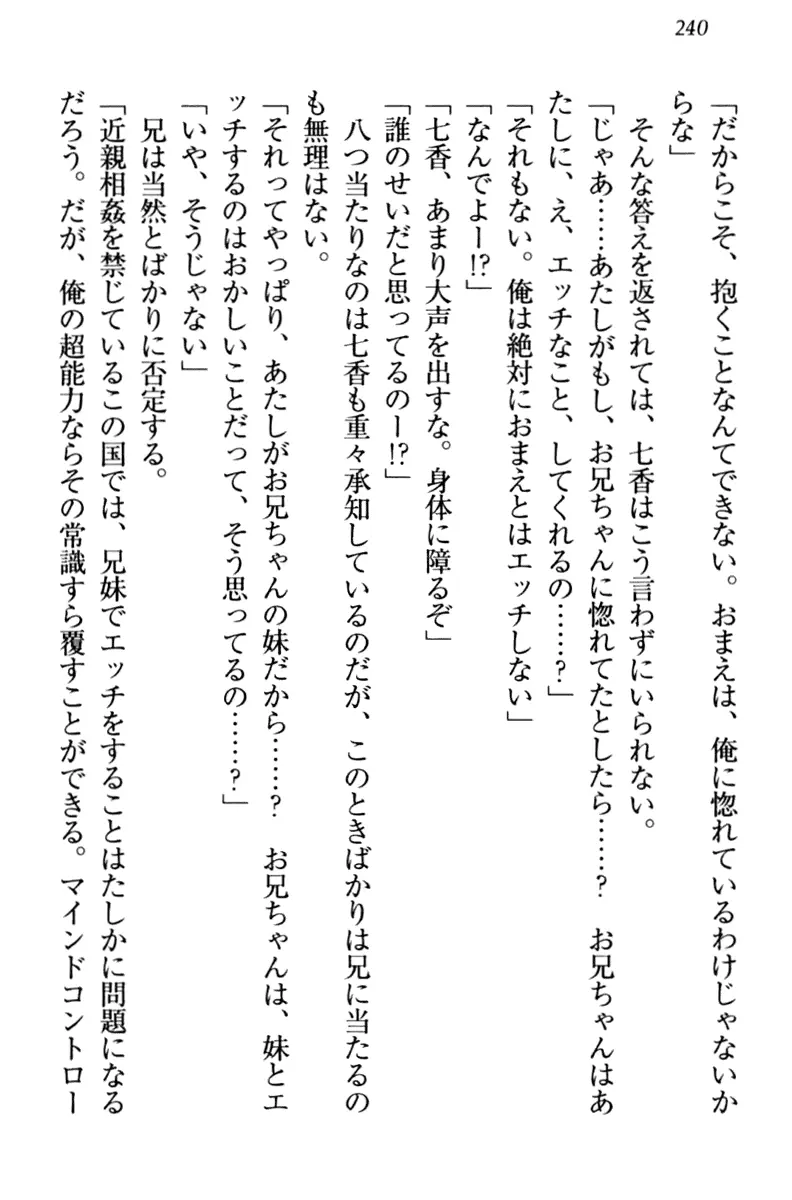 240
「だからこそ、抱くことなんてできない。おまえは、俺に惚れているわけじゃないか
らな」
　そんな答えを返されては、七香はこう言わずにいられない。
「じゃあ……あたしがもし、お兄ちゃんに惚れてたとしたら……？　お兄ちゃんはあ
たしに、え、エッチなこと、してくれるの……？」
「それもない。俺は絶対におまえとはエッチしない」
「なんでよー!?」
「七香、あまり大声を出すな。身体に障るぞ」
「誰のせいだと思ってるのー!?」
　八つ当たりなのは七香も重々承知しているのだが、このときばかりは兄に当たるの
も無理はない。
「それってやっぱり、あたしがお兄ちゃんの妹だから……？　お兄ちゃんは、妹とエ
ッチするのはおかしいことだって、そう思ってるの……？」
「いや、そうじゃない」
　兄は当然とばかりに否定する。
「近親相姦を禁じているこの国では、兄妹でエッチをすることはたしかに問題になる
だろう。だが、俺の超能力ならその常識すら覆すことができる。マインドコントロー